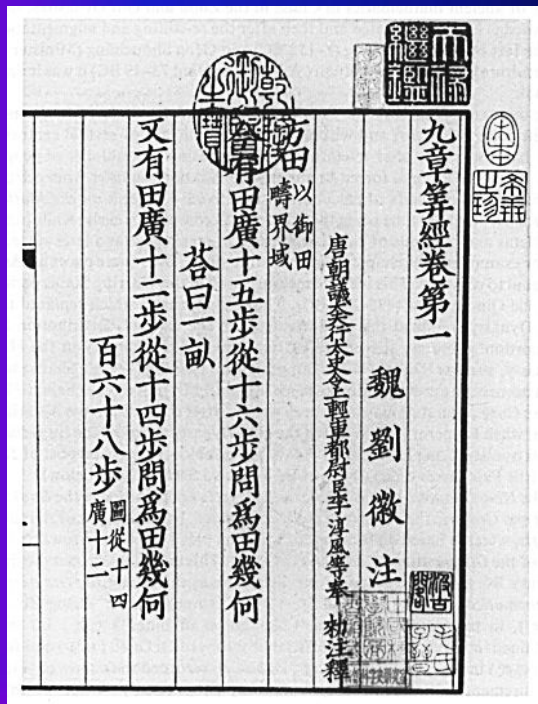 天祿繼鑑
乾隆御覽之寶
宋本
希世之珍
九章筭經卷第一
魏劉徽注
唐朝議大夫行大史令上輕車都尉臣李淳風等奉 勑注釋
方田
以御田
疇界域
有田廣十五步從十六步問爲田幾何
荅曰一畝
又有田廣十二步從十四步問爲田幾何
百六十八步
圖從十四
廣十二